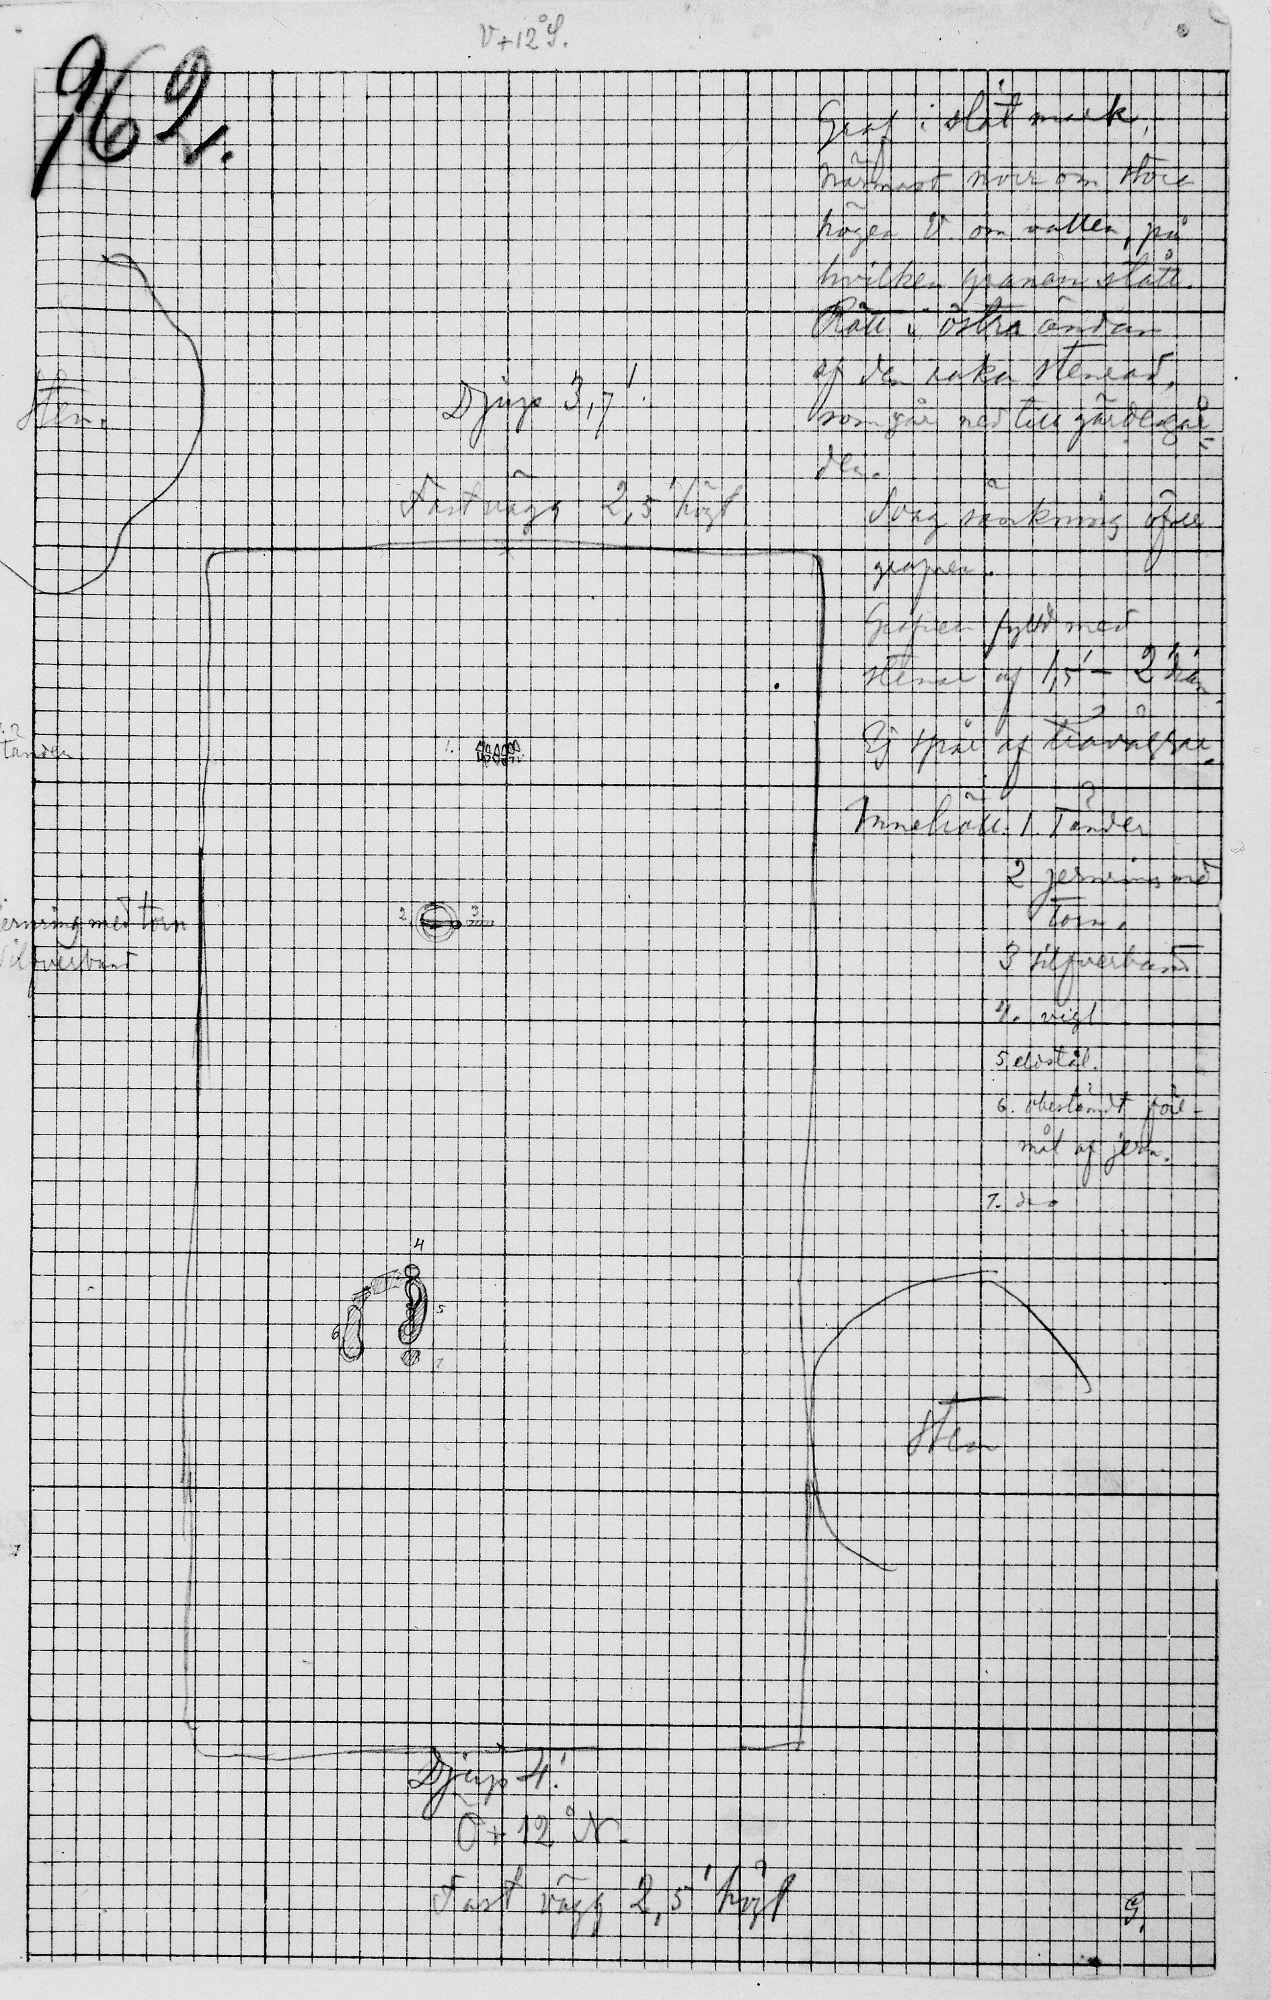 V+12°S.
962.
Graf i slät mark,
närmast norr om stora
högen V. om vallen, på
hvilken granen stått.
Rätt i östra ändan
af den raka stenrad,
som går ned till gärdesgår-
den.
Svag sänkning öfver
grafven.
Grafven fylld med
stenar af 1,5' – 2' diam.
Ej spår af träväggar.
Innehåll. 1. Tänder
2 jernring med
torn.
3 silfverband
4. vigt
5. eldstål.
6. obestämdt före-
mål af jern.
7. d:o
Sten.
Djup 3,7'.
Fast vägg 2,5' högt
tänder
1.
jernring med torn
silfverband
2.
3.
4
5
6.
7
Sten
Djup 4'.
Ö+12°N.
Fast vägg 2,5' högt
G.